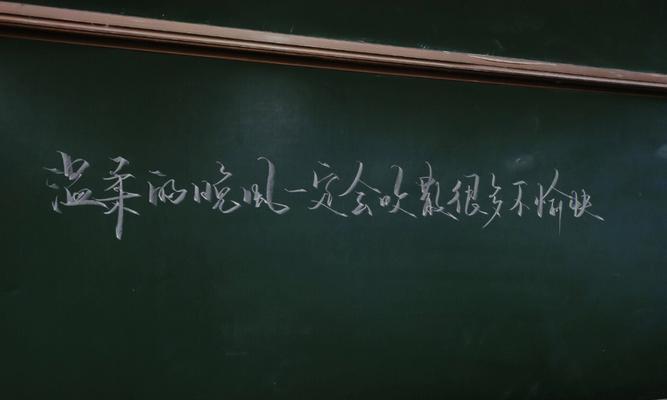 温柔的晚风一定会吹散很多不愉快